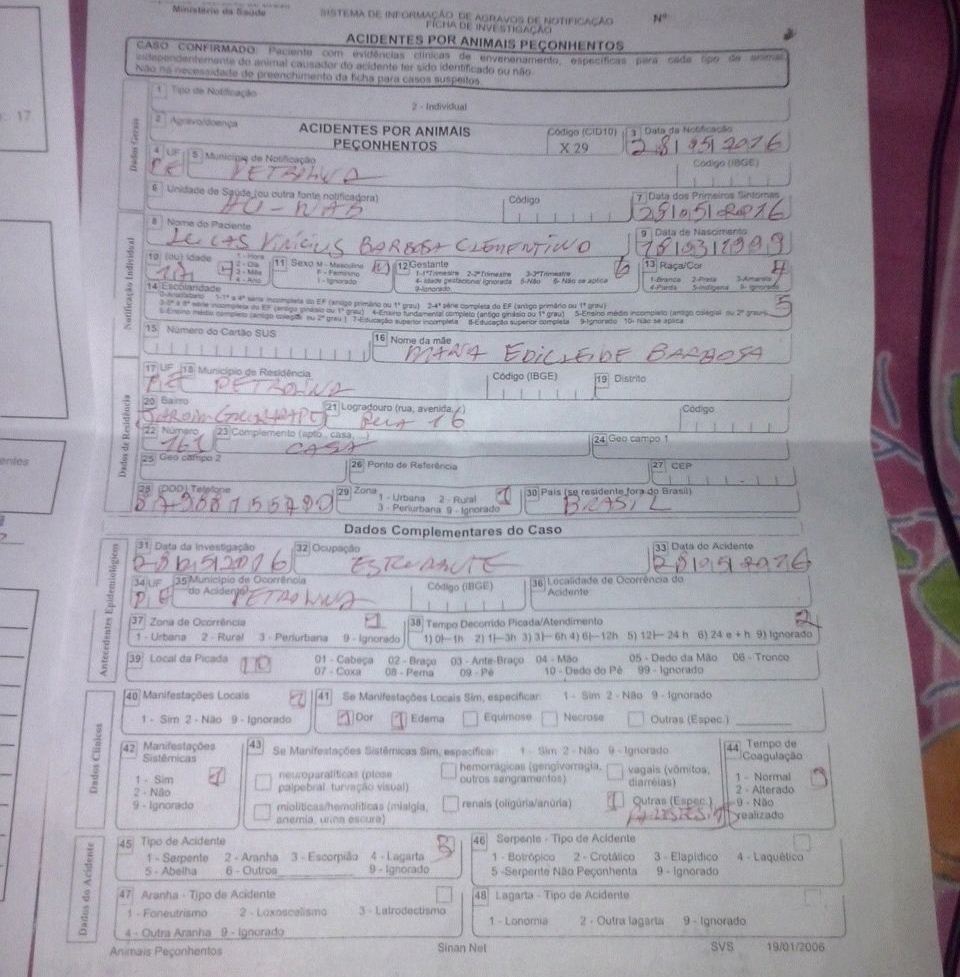 Ministério da Saúde
SISTEMA DE INFORMAÇÃO DE AGRAVOS DE NOTIFICAÇÃO Nº
FICHA DE INVESTIGAÇÃO
ACIDENTES POR ANIMAIS PEÇONHENTOS
CASO CONFIRMADO: Paciente com evidências clínicas de envenenamento, específicas para cada tipo de animal,
independentemente do animal causador do acidente ter sido identificado ou não.
Não há necessidade de preenchimento da ficha para casos suspeitos.
Dados Gerais
1 Tipo de Notificação
2 - Individual
2 Agravo/doença
ACIDENTES POR ANIMAIS PEÇONHENTOS
Código (CID10)
X 29
3 Data da Notificação
28 05 2016
4 UF PE
5 Município de Notificação
PETROLINA
Código (IBGE)
6 Unidade de Saúde (ou outra fonte notificadora)
Código
7 Data dos Primeiros Sintomas
28 05 2016
Notificação Individual
8 Nome do Paciente
LUCAS VINICIUS BARBOSA CLEMENTINO
9 Data de Nascimento
18 03 1999
10 (ou) Idade
1 - Hora
2 - Dia
3 - Mês
4 - Ano
17 4
11 Sexo M - Masculino
F - Feminino
I - Ignorado
M
12 Gestante 6
1-1ºTrimestre 2-2ºTrimestre 3-3ºTrimestre
4- Idade gestacional Ignorada 5-Não 6- Não se aplica
9-Ignorado
13 Raça/Cor 4
1-Branca 2-Preta 3-Amarela
4-Parda 5-Indígena 9- Ignorado
14 Escolaridade 5
0-Analfabeto 1-1ª a 4ª série incompleta do EF (antigo primário ou 1º grau) 2-4ª série completa do EF (antigo primário ou 1º grau)
3-5ª à 8ª série incompleta do EF (antigo ginásio ou 1º grau) 4-Ensino fundamental completo (antigo ginásio ou 1º grau) 5-Ensino médio incompleto (antigo colegial ou 2º grau)
6-Ensino médio completo (antigo colegial ou 2º grau) 7-Educação superior incompleta 8-Educação superior completa 9-Ignorado 10- Não se aplica
15 Número do Cartão SUS
16 Nome da mãe
MARIA EDICLEIDE BARBOSA
Dados de Residência
17 UF PE
18 Município de Residência
PETROLINA
Código (IBGE)
19 Distrito
20 Bairro
JARDIM
21 Logradouro (rua, avenida,...)
RUA 16
Código
22 Número
161
23 Complemento (apto., casa, ...)
CASA
24 Geo campo 1
25 Geo campo 2
26 Ponto de Referência
27 CEP
28 (DDD) Telefone
29 Zona 1
1 - Urbana 2 - Rural
3 - Periurbana 9 - Ignorado
30 País (se residente fora do Brasil)
BRASIL
Dados Complementares do Caso
Antecedentes Epidemiológicos
31 Data da Investigação
28 05 2016
32 Ocupação
ESTUDANTE
33 Data do Acidente
28 05 2016
34 UF PE
35 Município de Ocorrência do Acidente:
PETROLINA
Código (IBGE)
36 Localidade de Ocorrência do Acidente
37 Zona de Ocorrência 1
1 - Urbana 2 - Rural 3 - Periurbana 9 - Ignorado
38 Tempo Decorrido Picada/Atendimento 2
1) 0|—1h 2) 1|—3h 3) 3|—6h 4) 6|—12h 5) 12|— 24 h 6) 24 e + h 9) Ignorado
39 Local da Picada 10
01 - Cabeça 02 - Braço 03 - Ante-Braço 04 - Mão 05 - Dedo da Mão 06 - Tronco
07 - Coxa 08 - Perna 09 - Pé 10 - Dedo do Pé 99 - Ignorado
Dados Clínicos
40 Manifestações Locais 1
1 - Sim 2 - Não 9 - Ignorado
41 Se Manifestações Locais Sim, especificar: 1 - Sim 2 - Não 9 - Ignorado
1 Dor 1 Edema Equimose Necrose Outras (Espec.)
42 Manifestações Sistêmicas 1
1 - Sim
2 - Não
9 - Ignorado
43 Se Manifestações Sistêmicas Sim, especificar: 1 - Sim 2 - Não 9 - Ignorado
neuroparalíticas (ptose palpebral, turvação visual)
hemorrágicas (gengivorragia, outros sangramentos)
vagais (vômitos, diarréias)
miolíticas/hemolíticas (mialgia, anemia, urina escura)
renais (oligúria/anúria)
1 Outras (Espec.)
44 Tempo de Coagulação
1 - Normal
2 - Alterado
9 - Não realizado
Dados do Acidente
45 Tipo de Acidente
1 - Serpente 2 - Aranha 3 - Escorpião 4 - Lagarta
5 - Abelha 6 - Outros 9 - Ignorado
46 Serpente - Tipo de Acidente
1 - Botrópico 2 - Crotálico 3 - Elapídico 4 - Laquético
5 -Serpente Não Peçonhenta 9 - Ignorado
47 Aranha - Tipo de Acidente
1 - Foneutrismo 2 - Loxoscelismo 3 - Latrodectismo
4 - Outra Aranha 9 - Ignorado
48 Lagarta - Tipo de Acidente
1 - Lonomia 2 - Outra lagarta 9 - Ignorado
Animais Peçonhentos Sinan Net SVS 19/01/2006
17